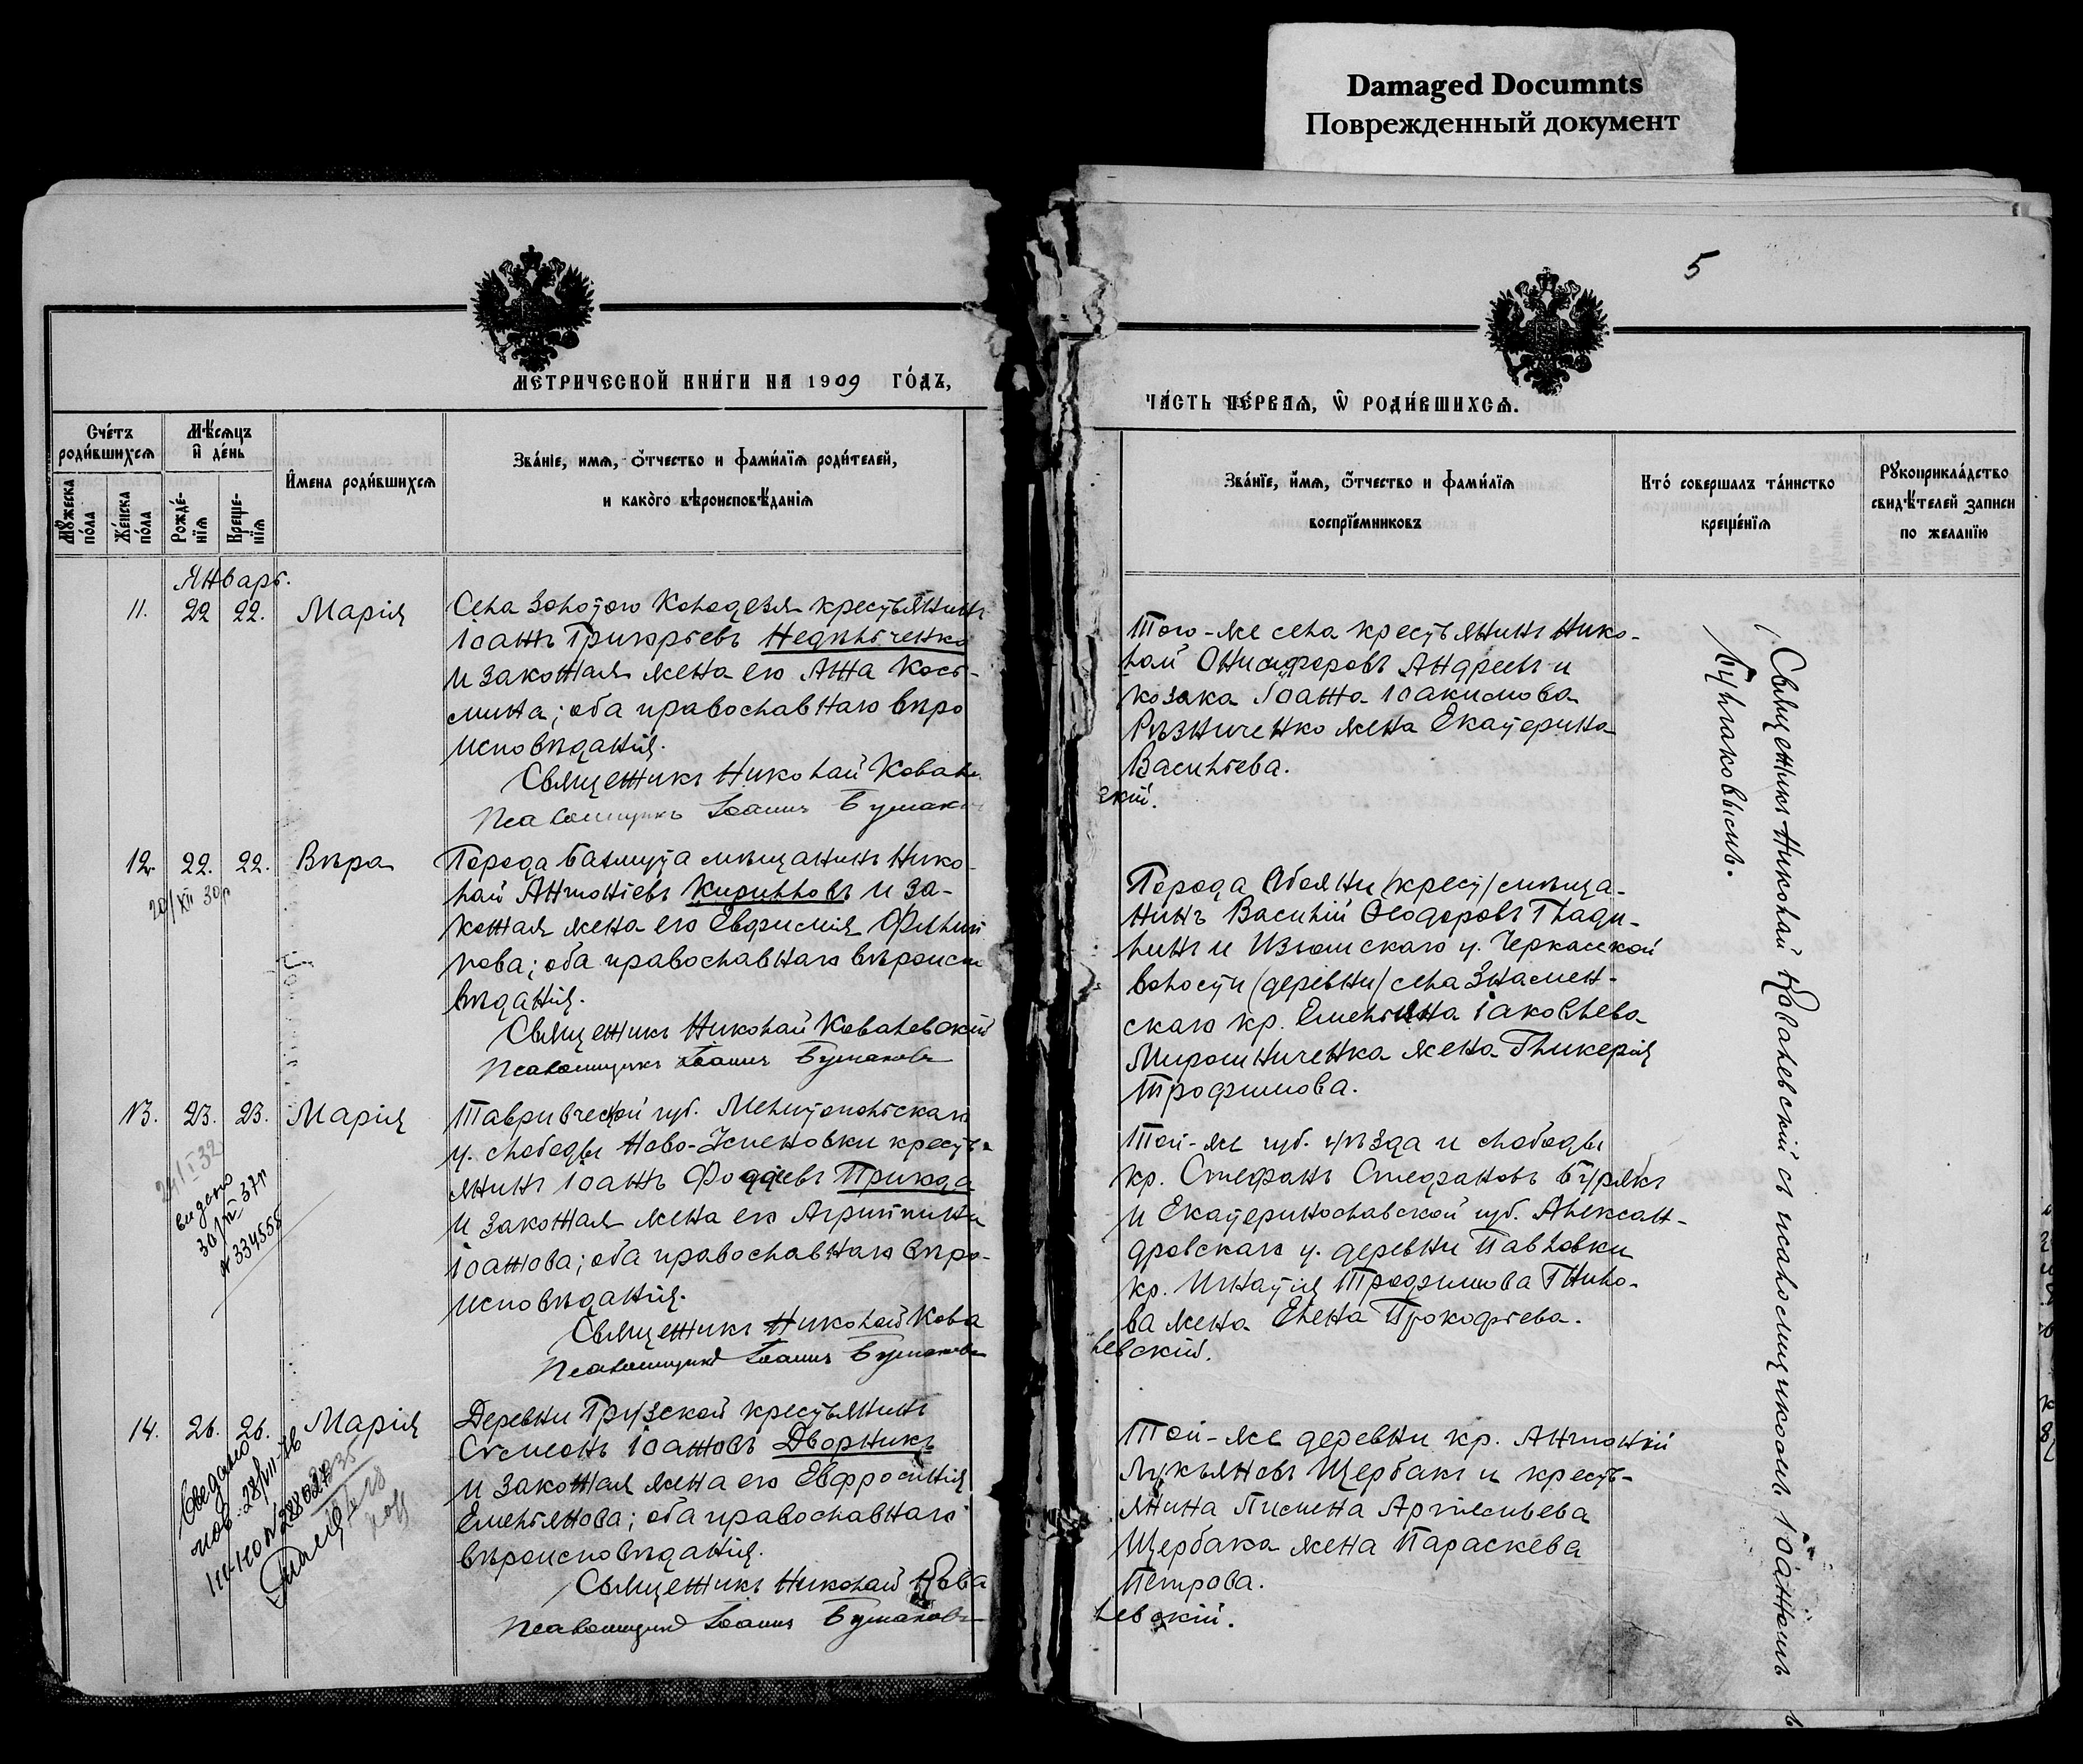 Damaged Documnts
Поврежденный документ
5
МЕТРИЧЕСКОЙ КНИ́ГИ НА 1909 ГО́ДЪ,
ЧА́СТЬ ПЕ́РВАЯ, Ѡ РОДИ́ВШИХСЯ.
Сче́тъ роди́вшихся
Мꙋ́жеска по́ла
Же́нска по́ла
Мѣ́сяцъ и де́нь
Рожде́-нїя
Креще-нїя
И́мена роди́вшихся
Зва́нїе, имя, о́тчество и фами́лїя роди́телей,
и како́го вѣроисповѣ́данїя
Зва́нїе, и́мя, о́тчество и фами́лїя
воспрїе́мниковъ
Кто́ соверша́лъ та́инство
креще́нїя
Рꙋкоприкла́дство
свидѣ́телей записи
по желанїю
Январь.
11. 22 22. Марія
Села Золотого Колодезя крестьянинъ
Іоаннъ Григорьевъ Недильченко
и законная жена его Анна Козь-
мина; оба православнаго вѣро
исповѣданія.
Священникъ Николай Ковале
Псаломщикъ Іоаннъ Булмако
Того-же села крестьянинъ Нико-
лай Онисифоровъ Андреевъ и
козака Іоанна Іоакимова
Рѣзниченко жена Екатерина
Васильева.
вскій.
12. 22. 22. Вѣра
20/XII 30 г
Города Бахмута мѣщанинъ Нико-
лай Антоніевъ Кирилловъ и за-
конная жена его Евфимія Филип
пова; оба православнаго вѣроиспо
вѣданія.
Священникъ Николай Ковалевскій
Псаломщикъ Іоаннъ Булмаковъ
Города Обояни /крест/ мѣща-
нинъ Василій Ѳеодоровъ Глади-
линъ и Изюмскаго у. Черкасской
волости /деревни/ села Знамен-
скаго кр. Емельяна Іаковлева
Мирошниченка жена Гликерія
Трофимова.
13. 23. 23. Марія
24/I 32
видано
30/IV 37 г
№ 334555
Таврической губ. Мелитопольскаго
у. слободы Ново-Успеновки кресть-
янинъ Іоаннъ Фаддеевъ Приходо
и законная жена его Агриппина
Іоаннова; оба православнаго вѣро-
исповѣданія.
Священникъ Николай Кова
Псаломщикъ Іоаннъ Булмаковъ
Той-же губ. уѣзда и слободы
кр. Стефанъ Стефановъ Бурякъ
и Екатеринославской губ. Алексан-
дровскаго у. деревни Павловки
кр. Игнатія Трофимова Гнило-
ва жена Елена Прокофьева.
левскій.
14. 26. 26. Марія
Деревни Грузской крестьянинъ
Сѵмеонъ Іоанновъ Дворникъ
и законная жена его Евфросинія
Емельянова; оба православнаго
вѣроисповѣданія.
Священникъ Николай Кова
Псаломщикъ Іоаннъ Булмаковъ
Той-же деревни кр. Антоній
Лукьяновъ Щербакъ и кресть-
янина Пимена Артемьева
Щербака жена Параскева
Петрова.
левскій.
Священникъ Николай Ковалевскій съ псаломщикомъ Іоанномъ
Булмаковымъ.